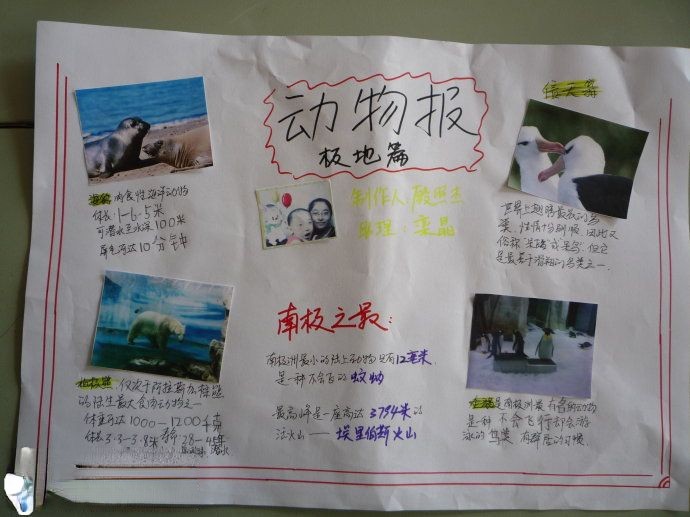 动物报
极地篇
制作人：殷照杰
助理：栾晶
海豹 肉食性海洋动物
体长1-6.5米
可潜水至水深100米
屏气可达10分钟
信天翁
世界上翅膀最长的鸟
类，性情特别顺，因此又
俗称"笨鸥"或"呆鸟"但它
是最善于滑翔的鸟类之一.
南极之最：
南极洲最小的陆上动物 只有12毫米，
是一种不会飞的蚊蚋
最高峰是一座高达3794米的
活火山——埃里伯斯火山
北极熊，仅次于阿拉斯加棕熊
的陆生最大食肉动物之一
体重可达1000-1200千克
体长3.3-3.8米
企鹅是南极洲最有名的动物
是一种不会飞行却会游
泳的鸟类 有群居的习惯.